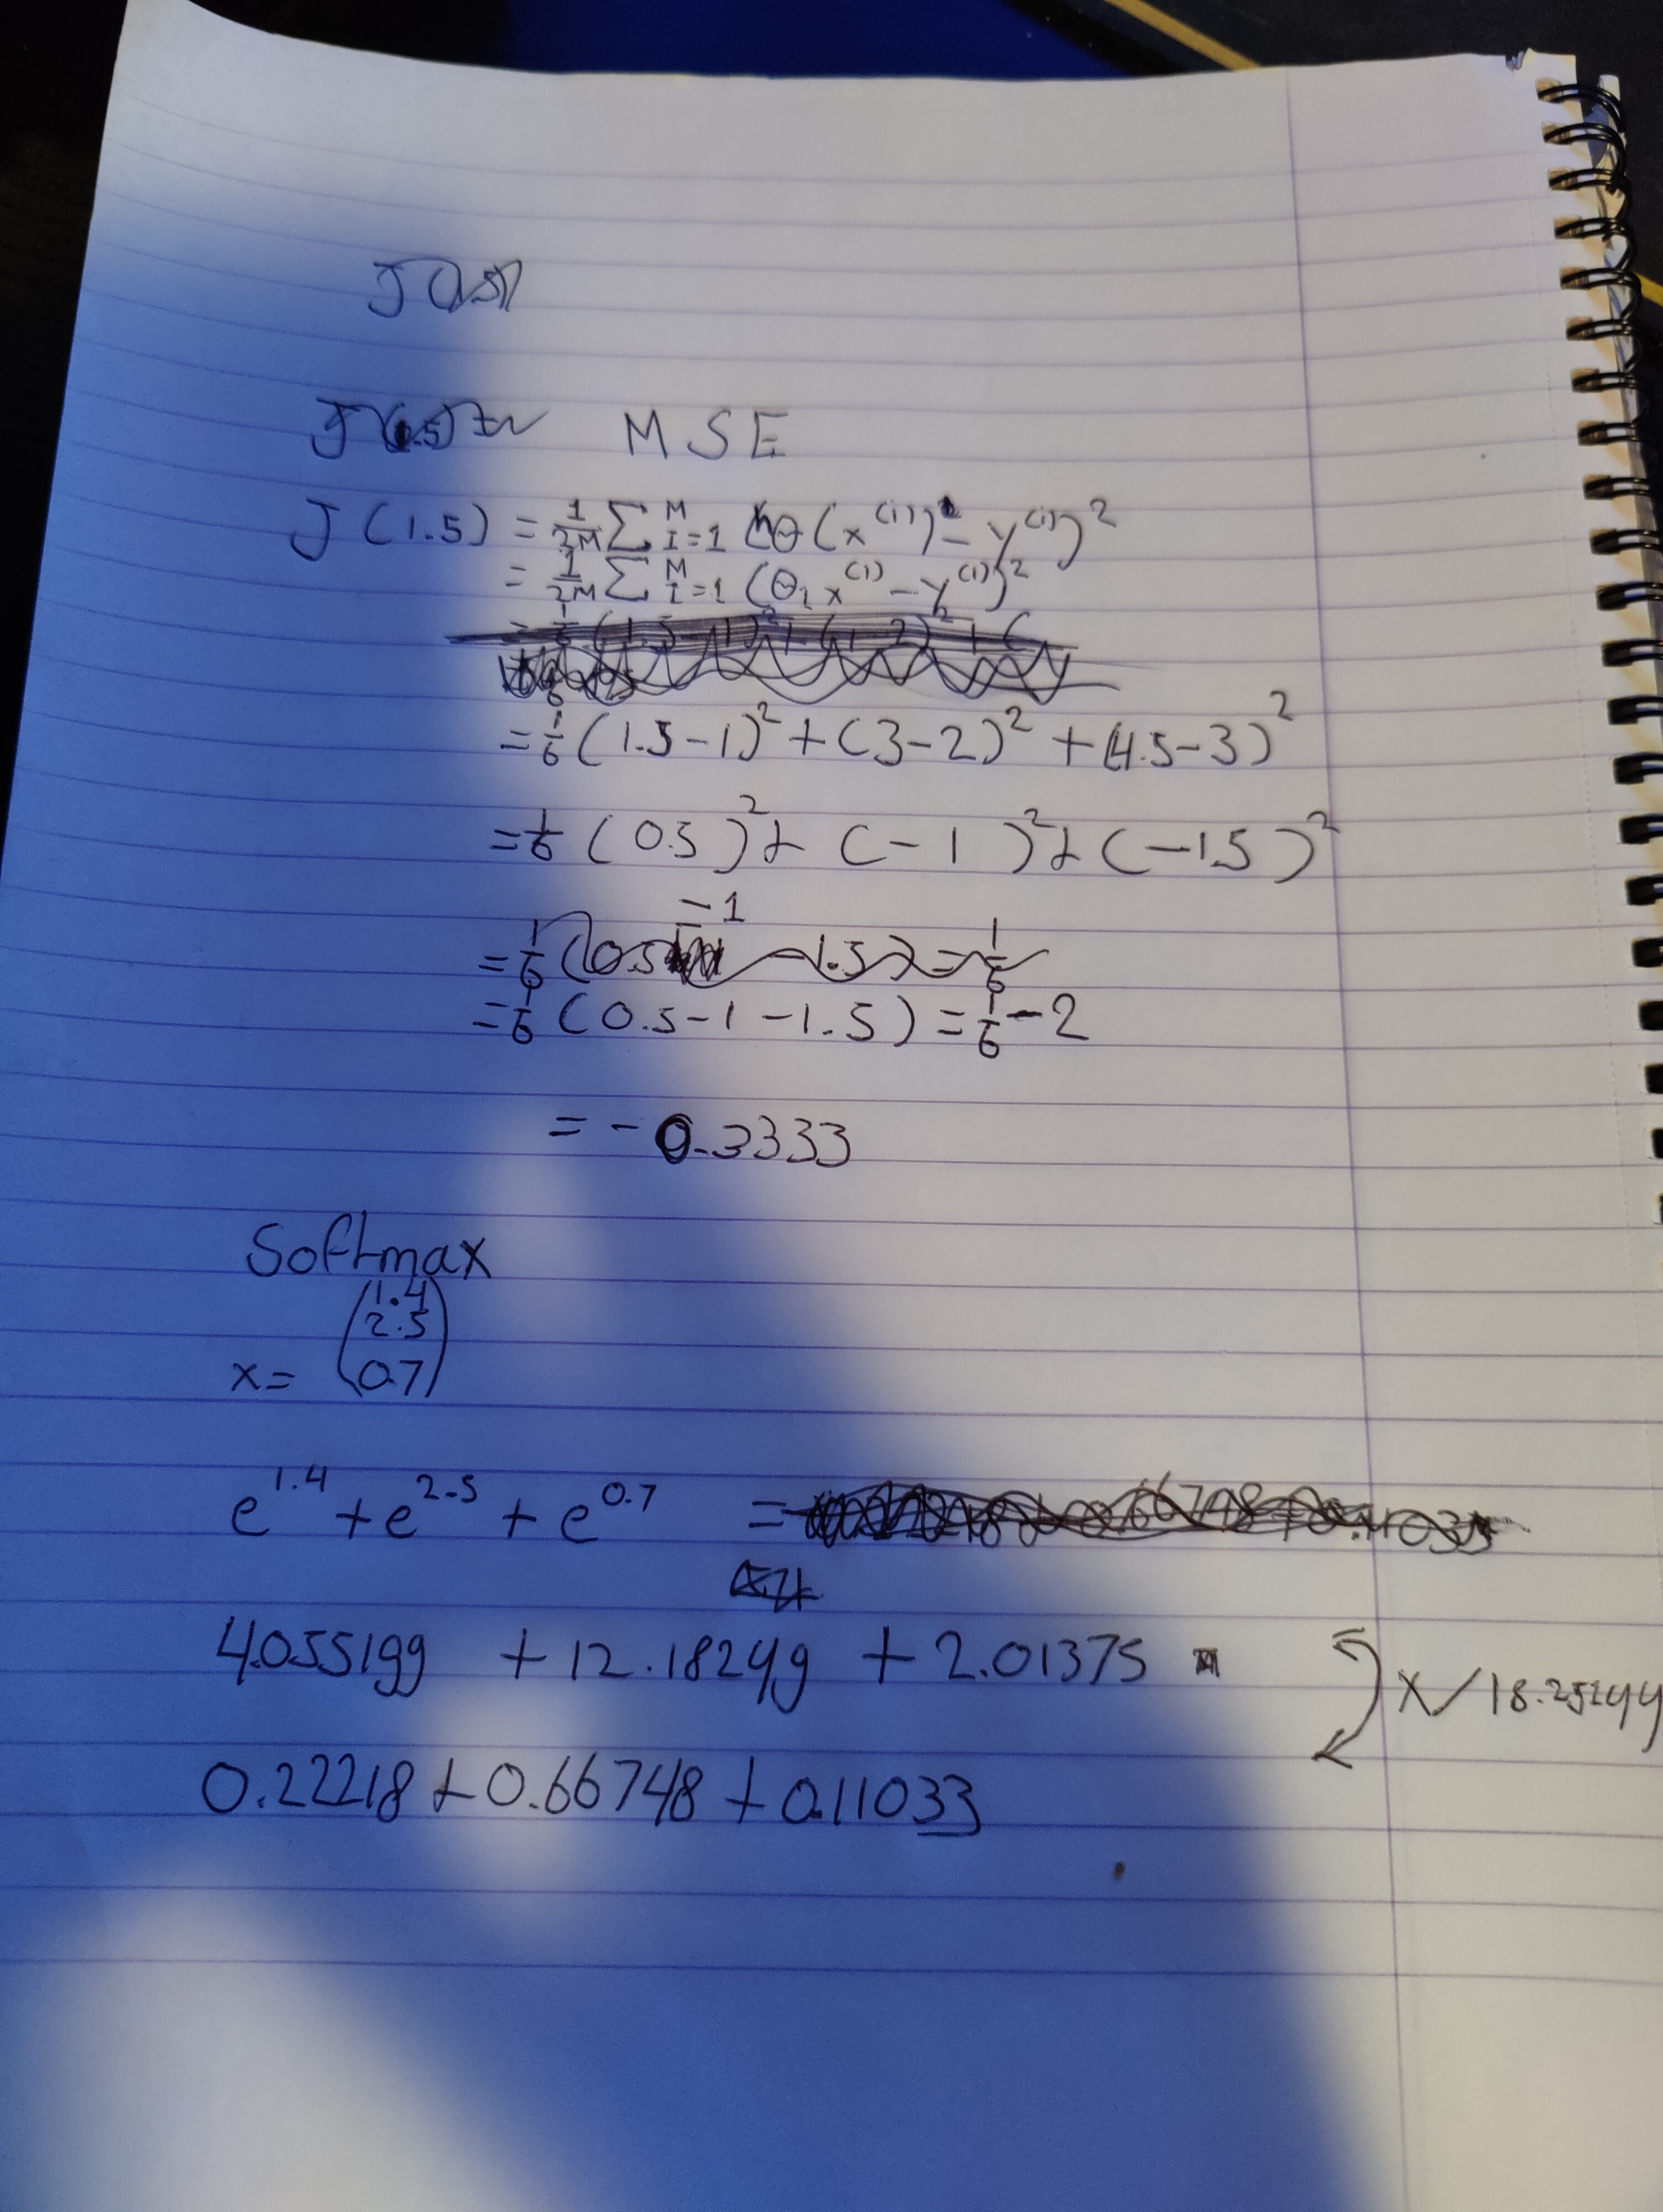 MSE
J(1.5) = 1/2M Σ M I=1 (hθ(x^(1)) - y^(1))^2
= 1/2M Σ M I=1 (θ1 x^(1) - y^(1))^2
= 1/6 (1.5-1)^2 + (3-2)^2 + (4.5-3)^2
= 1/6 (0.5)^2 + (-1)^2 + (-1.5)^2
-1
= 1/6 (0.5 -1.5) = 1/6
= 1/6 (0.5-1-1.5) = 1/6 -2
= -0.3333
Softmax
x = (1.4
2.5
0.7)
e^1.4 + e^2.5 + e^0.7 =
4.055199 + 12.18249 + 2.01375
x/18.25144
0.22218 + 0.66748 + 0.11033